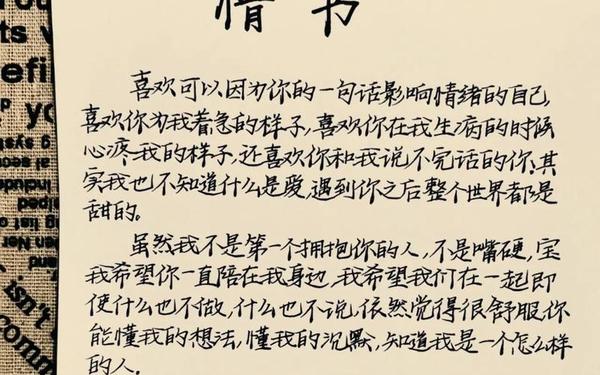 情书
喜欢可以因为你的一句话影响情绪的自己,
喜欢你为我着急的样子,喜欢你在我生病的时候
心疼我的样子,还喜欢你和我说不完话的你、其
实我也不知道什么是爱,遇到你之后整个世界都是
甜的。
虽然我不是第一个拥抱你的人,不是嘴硬,宝
我希望你一直陪在我身边,我希望我们在一起即
使什么也不做,什么也不说,依然觉得很舒服你
能懂我的想法,懂我的沉默,知道我是一个怎么样
的人.
isn't
comm